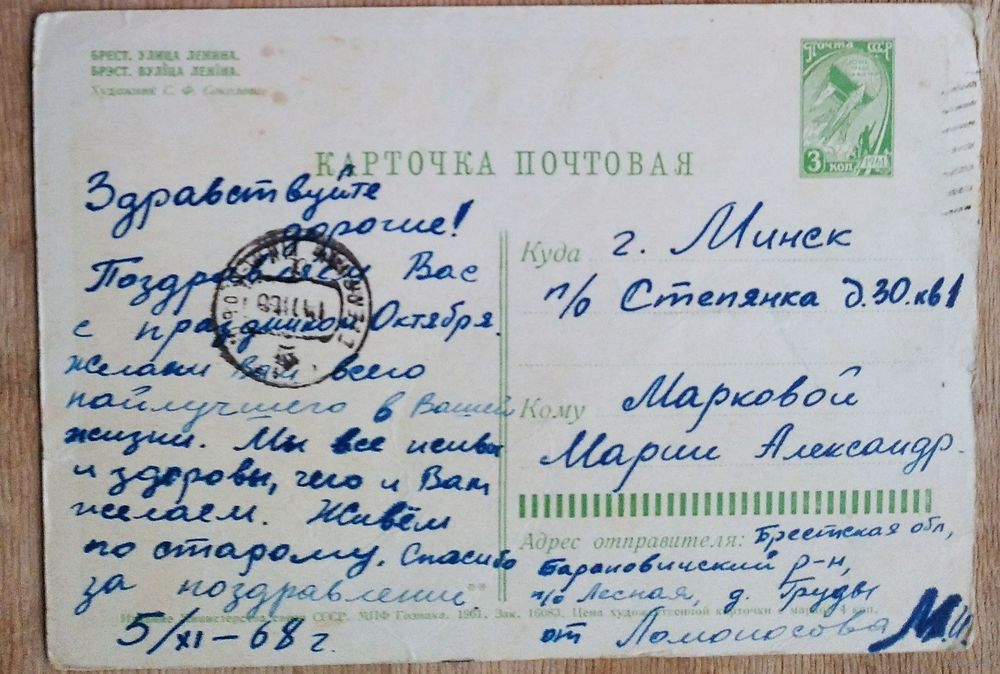 БРЕСТ. УЛИЦА ЛЕНИНА.
БРЭСТ. ВУЛІЦА ЛЕНІНА.
Художник С. Ф. Соколов
Почта СССР
3 коп
1961
КАРТОЧКА ПОЧТОВАЯ
Здравствуйте
дорогие!
Поздравляем Вас
с праздником Октября.
желаем Вам всего
найлучшего в Вашей
жизни. Мы все живы
и здоровы, чего и Вам
желаем. Живём
по старому. Спасибо
за поздравления
5/XI–68 г.
Куда г. Минск
п/о Степянка д.30.кв1
Кому Марковой
Марии Александр.
Адрес отправителя: Брестская обл,
Барановичский р-н,
п/о Лесная, д. Груды
от Ломоносова М.И.
Издание Министерства связи СССР. МПФ Гознака. 1961. Зак. 16083. Цена художественной карточки с маркой 4 коп.